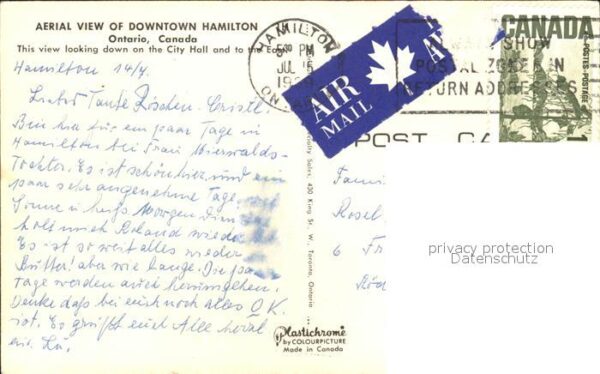 AERIAL VIEW OF DOWNTOWN HAMILTON
Ontario, Canada
This view looking down on the City Hall and to the East
HAMILTON
5 30 PM
JUL 15
ONTARIO
AIR
MAIL
ALWAYS SHOW
POSTAL ZONE IN
RETURN ADDRESSES
CANADA
POSTES-POSTAGE
POST CA
Hamilton 14/7.
Liebes Tante Röschen. Christl.
Bin hier für ein paar Tage in
Hamilton bei Frau
Tochter. Es ist schön hier und ein
paar sehr angenehme Tage,
Sonne u. heiß. Morgen Dien
holt mich Roland wieder
Es ist so weit alles wieder
Butter! aber wie lange. Die pa
Tage werden auch herumgehen.
Denke daß bei euch noch alles O.K.
ist. Es grüßt euch Alle
Famil
Rosel
6 Fr
Röd
privacy protection
Datenschutz
Sales, 430 King St. W., Toronto, Ontario
Plastichrome
by COLOURPICTURE
Made in Canada